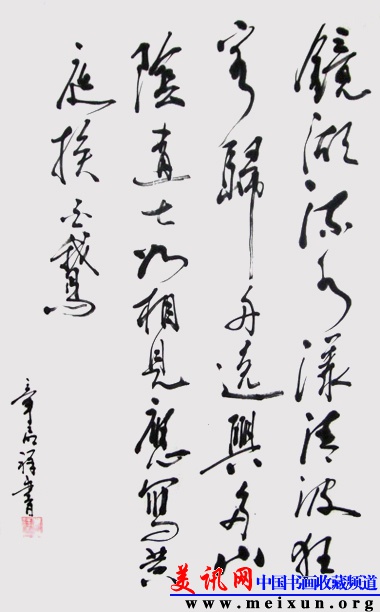 鏡湖流水漾清波狂
客歸舟逸興多山
陰道士如相見應寫黃
庭換白鵝
章祥書
美讯网 中国书画收藏频道
www.meixun.org